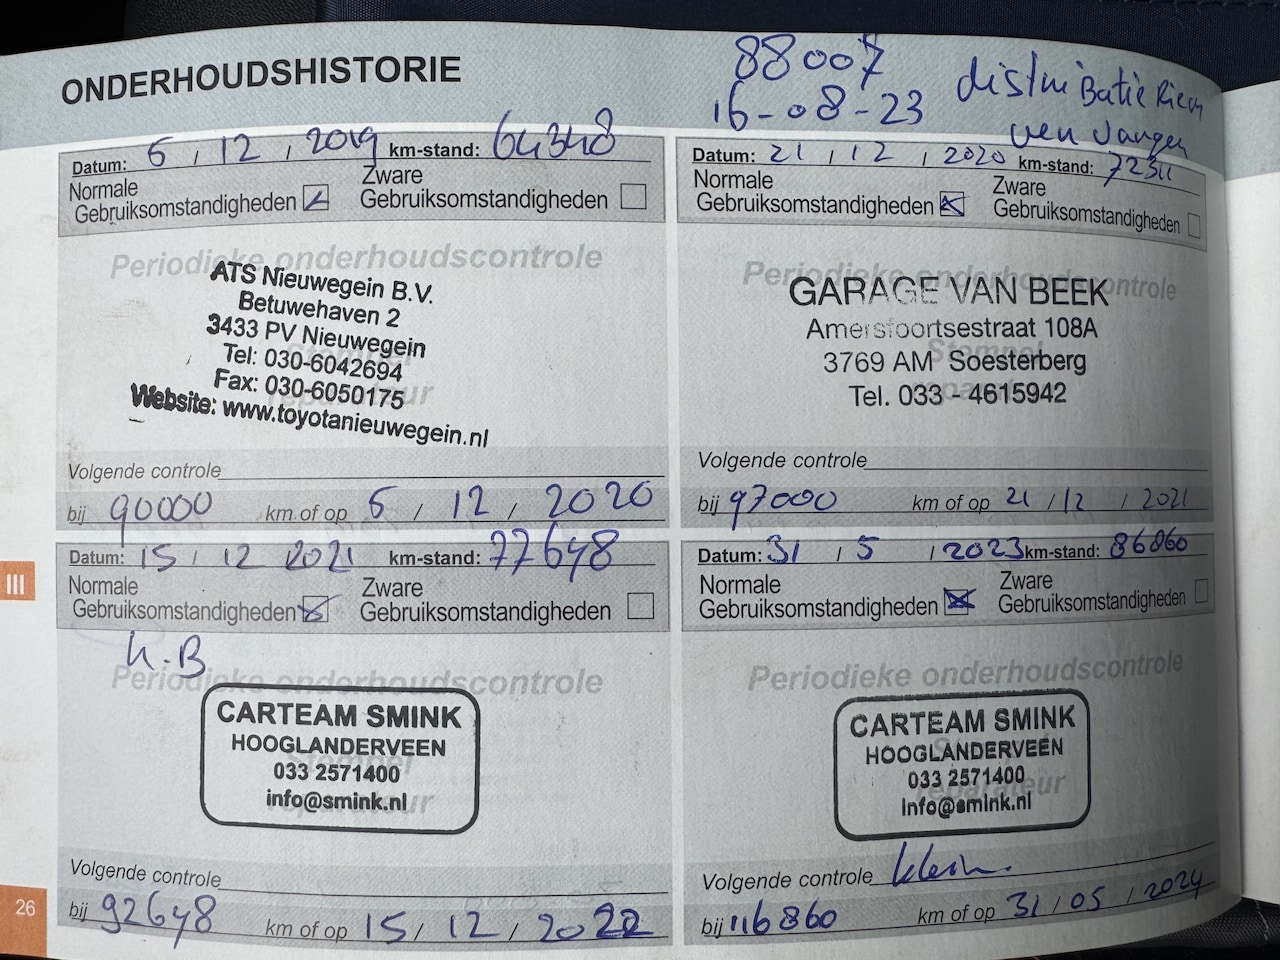 ONDERHOUDSHISTORIE
88007
16-08-23
distributie Riem
ver vangen
Datum: 6 / 12 / 2019 km-stand: 64348
Normale
Gebruiksomstandigheden
Zware
Gebruiksomstandigheden
Periodieke onderhoudscontrole
ATS Nieuwegein B.V.
Betuwehaven 2
3433 PV Nieuwegein
Tel: 030-6042694
Fax: 030-6050175
Website: www.toyotanieuwegein.nl
Volgende controle
bij 90000 km of op 6 / 12 / 2020
Datum: 21 / 12 / 2020 km-stand: 72311
Normale
Gebruiksomstandigheden
Zware
Gebruiksomstandigheden
Periodieke onderhoudscontrole
Stempel
GARAGE VAN BEEK
Amersfoortsestraat 108A
3769 AM Soesterberg
Tel. 033 - 4615942
Volgende controle
bij 97000 km of op 21 / 12 / 2021
Datum: 15 / 12 2021 km-stand: 77648
Normale
Gebruiksomstandigheden
Zware
Gebruiksomstandigheden
K.B
Periodieke onderhoudscontrole
CARTEAM SMINK
HOOGLANDERVEEN
033 2571400
info@smink.nl
Volgende controle
bij 92648 km of op 15 / 12 / 2022
Datum: 31 / 5 / 2023 km-stand: 86860
Normale
Gebruiksomstandigheden
Zware
Gebruiksomstandigheden
Periodieke onderhoudscontrole
CARTEAM SMINK
HOOGLANDERVEEN
033 2571400
info@smink.nl
Volgende controle klein.
bij 116860 km of op 31 / 05 / 2024
III
26